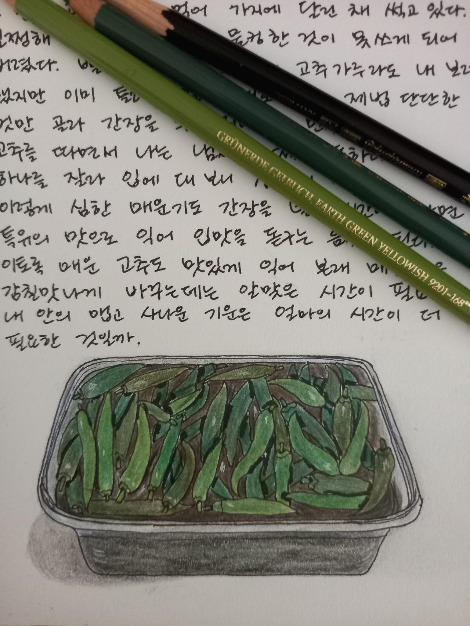 먹어 가지에 달린 채 썩고 있다.
물컹한 것이 못쓰게 되어
버렸다. 고추가루라도 내 보려
했지만 이미 제법 단단한
것만 골라 간장을
고추를 따면서 나는
하나를 잘라 입에 대 보니
이렇게 심한 매운기도 간장을
특유의 맛으로 익어 입맛을 돋구는
이토록 매운 고추도 맛있게 익어
감칠맛나게 바꾸는데는 알맞은 시간이
내 안의 맵고 사나운 기운은 얼마의 시간이 더
필요한 것일까.
GRÜNERDE GELBLICH EARTH GREEN YELLOWISH 9201-168